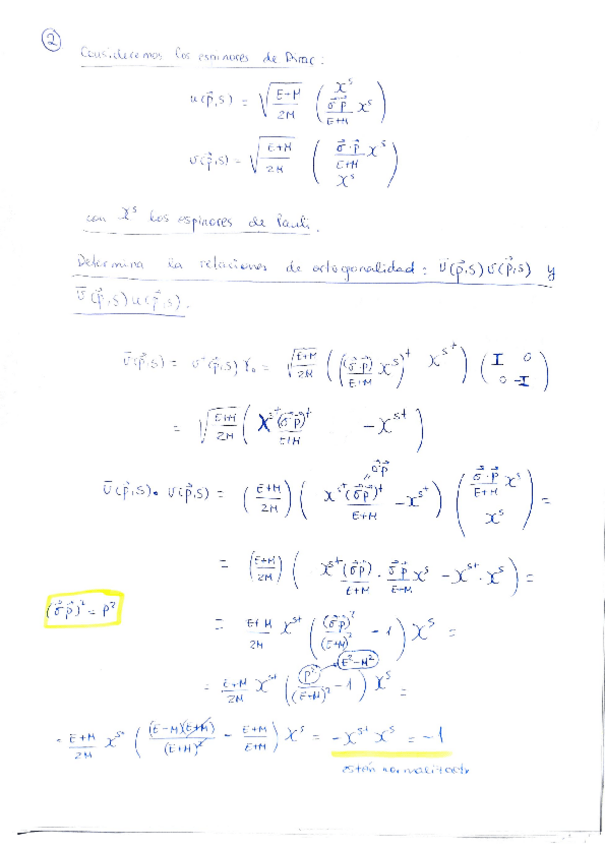 ②
Consideremos los espinores de Dirac:
u(p⃗,s) = √(E-M / 2M) ( χ^s ; σ⃗·p⃗ / E+M χ^s )
v(p⃗,s) = √(E+M / 2M) ( σ⃗·p⃗ / E+M χ^s ; χ^s )
con χ^s los espinores de Pauli.
Determina la relaciones de ortogonalidad: v̄(p⃗,s) v(p⃗,s) y
v̄(p⃗,s) u(p⃗,s).
v̄(p⃗,s) = v⁺(p⃗,s) γ₀ = √(E+M / 2M) ( ((σ⃗·p⃗) / E+M χ^s)⁺ χ^s⁺ ) ( I 0 ; 0 -I )
= √(E+M / 2M) ( χ^s⁺ (σ⃗p⃗)⁺ / E+M - χ^s⁺ )
σ⃗p⃗
v̄(p⃗,s) · v(p⃗,s) = (E+M / 2M) ( χ^s⁺ (σ⃗p⃗)⁺ / E+M - χ^s⁺ ) ( σ⃗·p⃗ / E+M χ^s ; χ^s ) =
= (E+M / 2M) ( χ^s⁺ (σ⃗p⃗) / E+M · σ⃗p⃗ / E+M χ^s - χ^s⁺ · χ^s ) =
(σ⃗p⃗)² = p²
= E+M / 2M χ^s⁺ ( (σ⃗p⃗)² / (E+M)² - 1 ) χ^s =
E²-M²
= E+M / 2M χ^s⁺ ( p² / (E+M)² - 1 ) χ^s =
= E+M / 2M χ^s⁺ ( (E-M)(E+M) / (E+M)² - E+M / E+M ) χ^s = - χ^s⁺ χ^s = -1
están normalizados